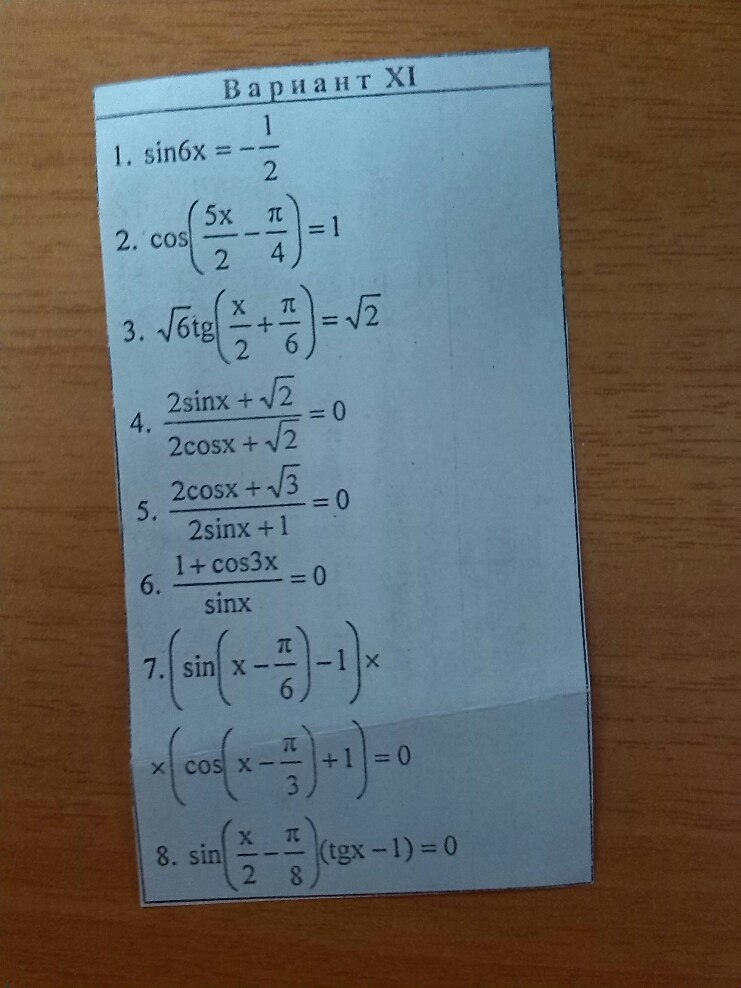 Вариант XI
1. sin6x = −1/2
2. cos(5x/2 − π/4) = 1
3. √6tg(x/2 + π/6) = √2
4. (2sinx + √2)/(2cosx + √2) = 0
5. (2cosx + √3)/(2sinx + 1) = 0
6. (1 + cos3x)/sinx = 0
7. (sin(x − π/6) − 1)×
×(cos(x − π/3) + 1) = 0
8. sin(x/2 − π/8)(tgx − 1) = 0